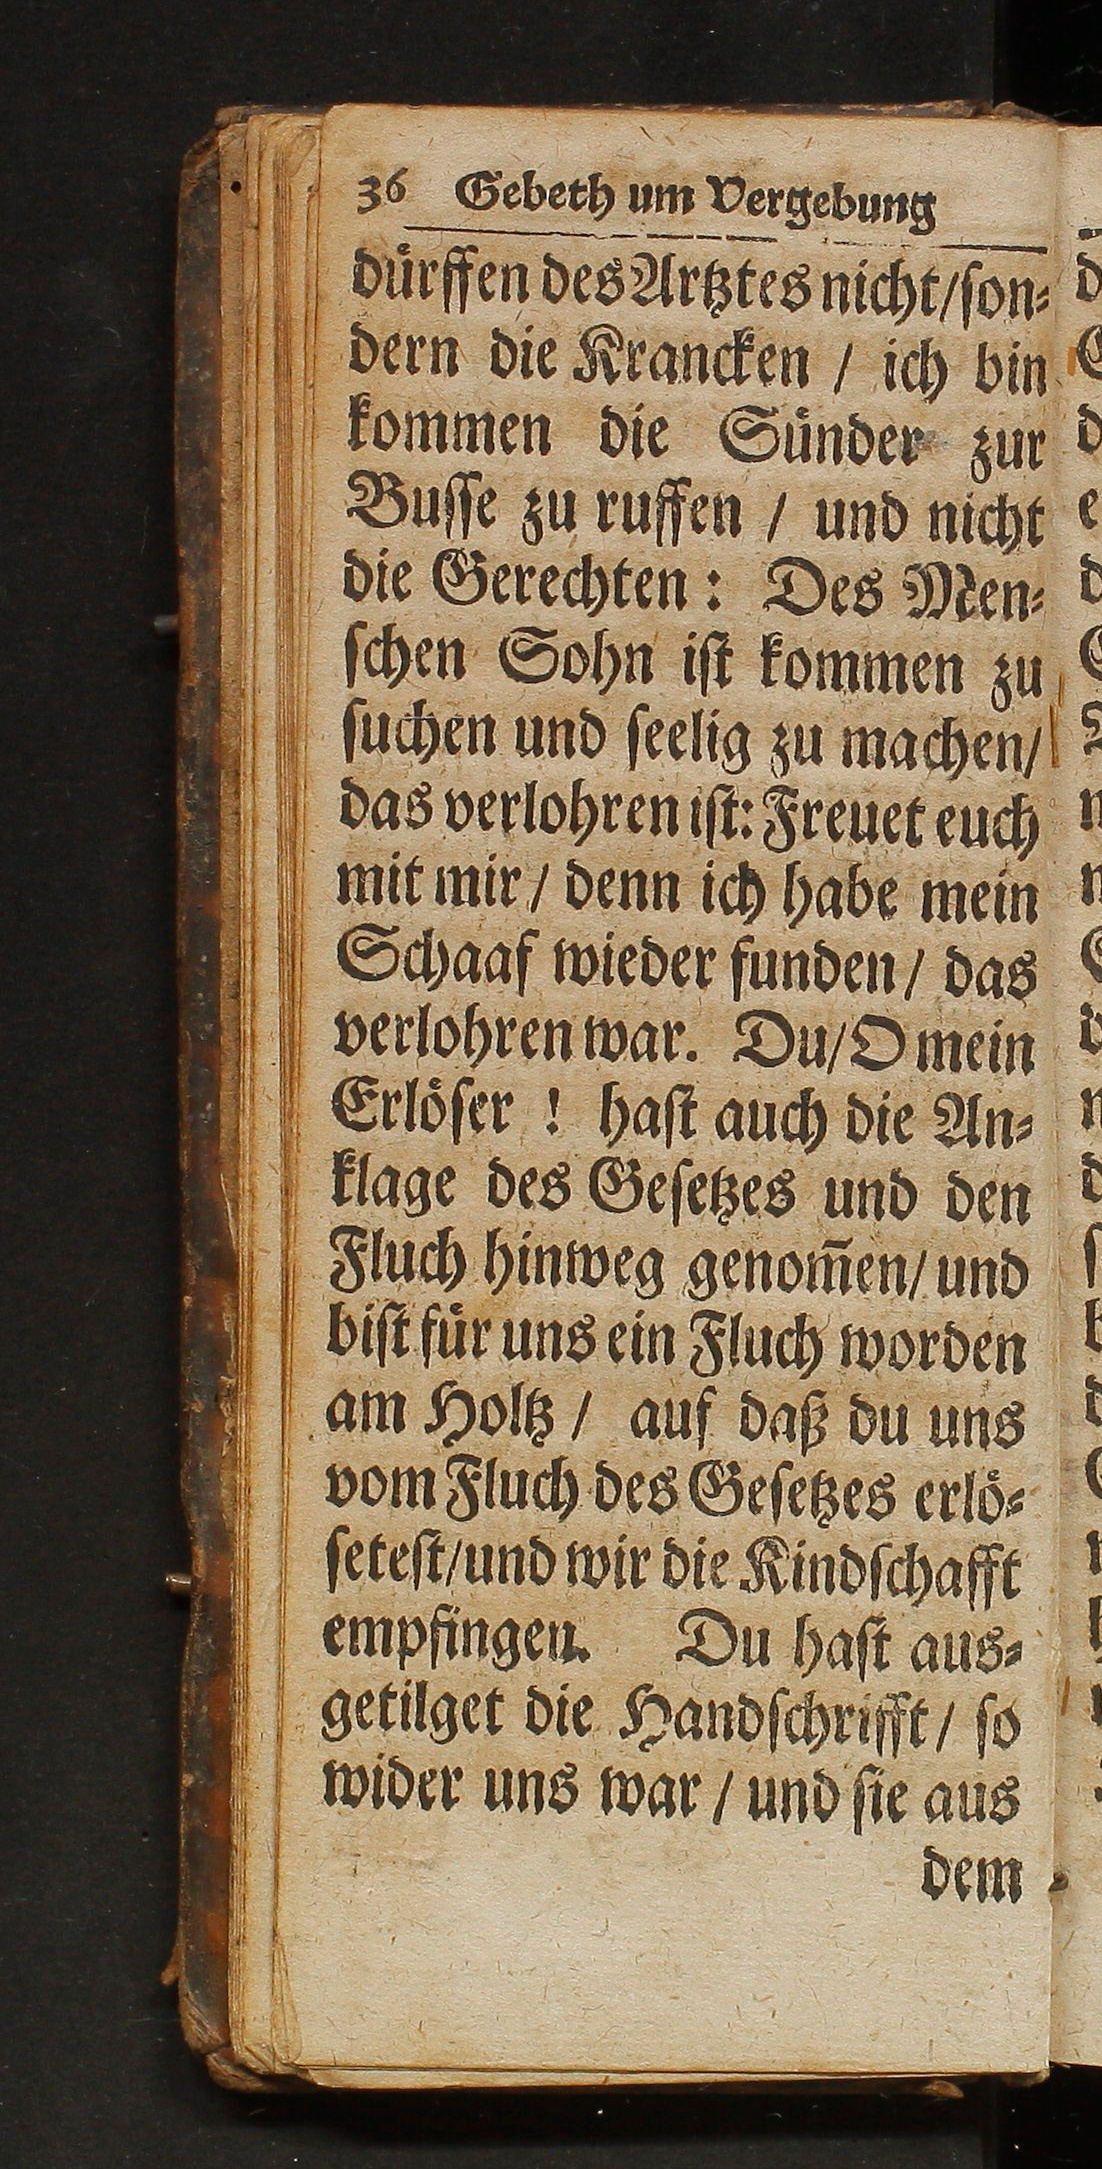 36 Gebeth um Vergebung
dürffen des Artztes nicht/son-
dern die Krancken / ich bin
kommen die Sünder zur
Busse zu ruffen / und nicht
die Gerechten: Des Men-
schen Sohn ist kommen zu
suchen und seelig zu machen/
das verlohren ist: Freuet euch
mit mir / denn ich habe mein
Schaaf wieder funden / das
verlohren war. Du/O mein
Erlöser ! hast auch die An-
klage des Gesetzes und den
Fluch hinweg genom̅en/ und
bist für uns ein Fluch worden
am Holtz / auf daß du uns
vom Fluch des Gesetzes erlö-
setest/und wir die Kindschafft
empfingen. Du hast aus-
getilget die Handschrifft / so
wider uns war / und sie aus
dem